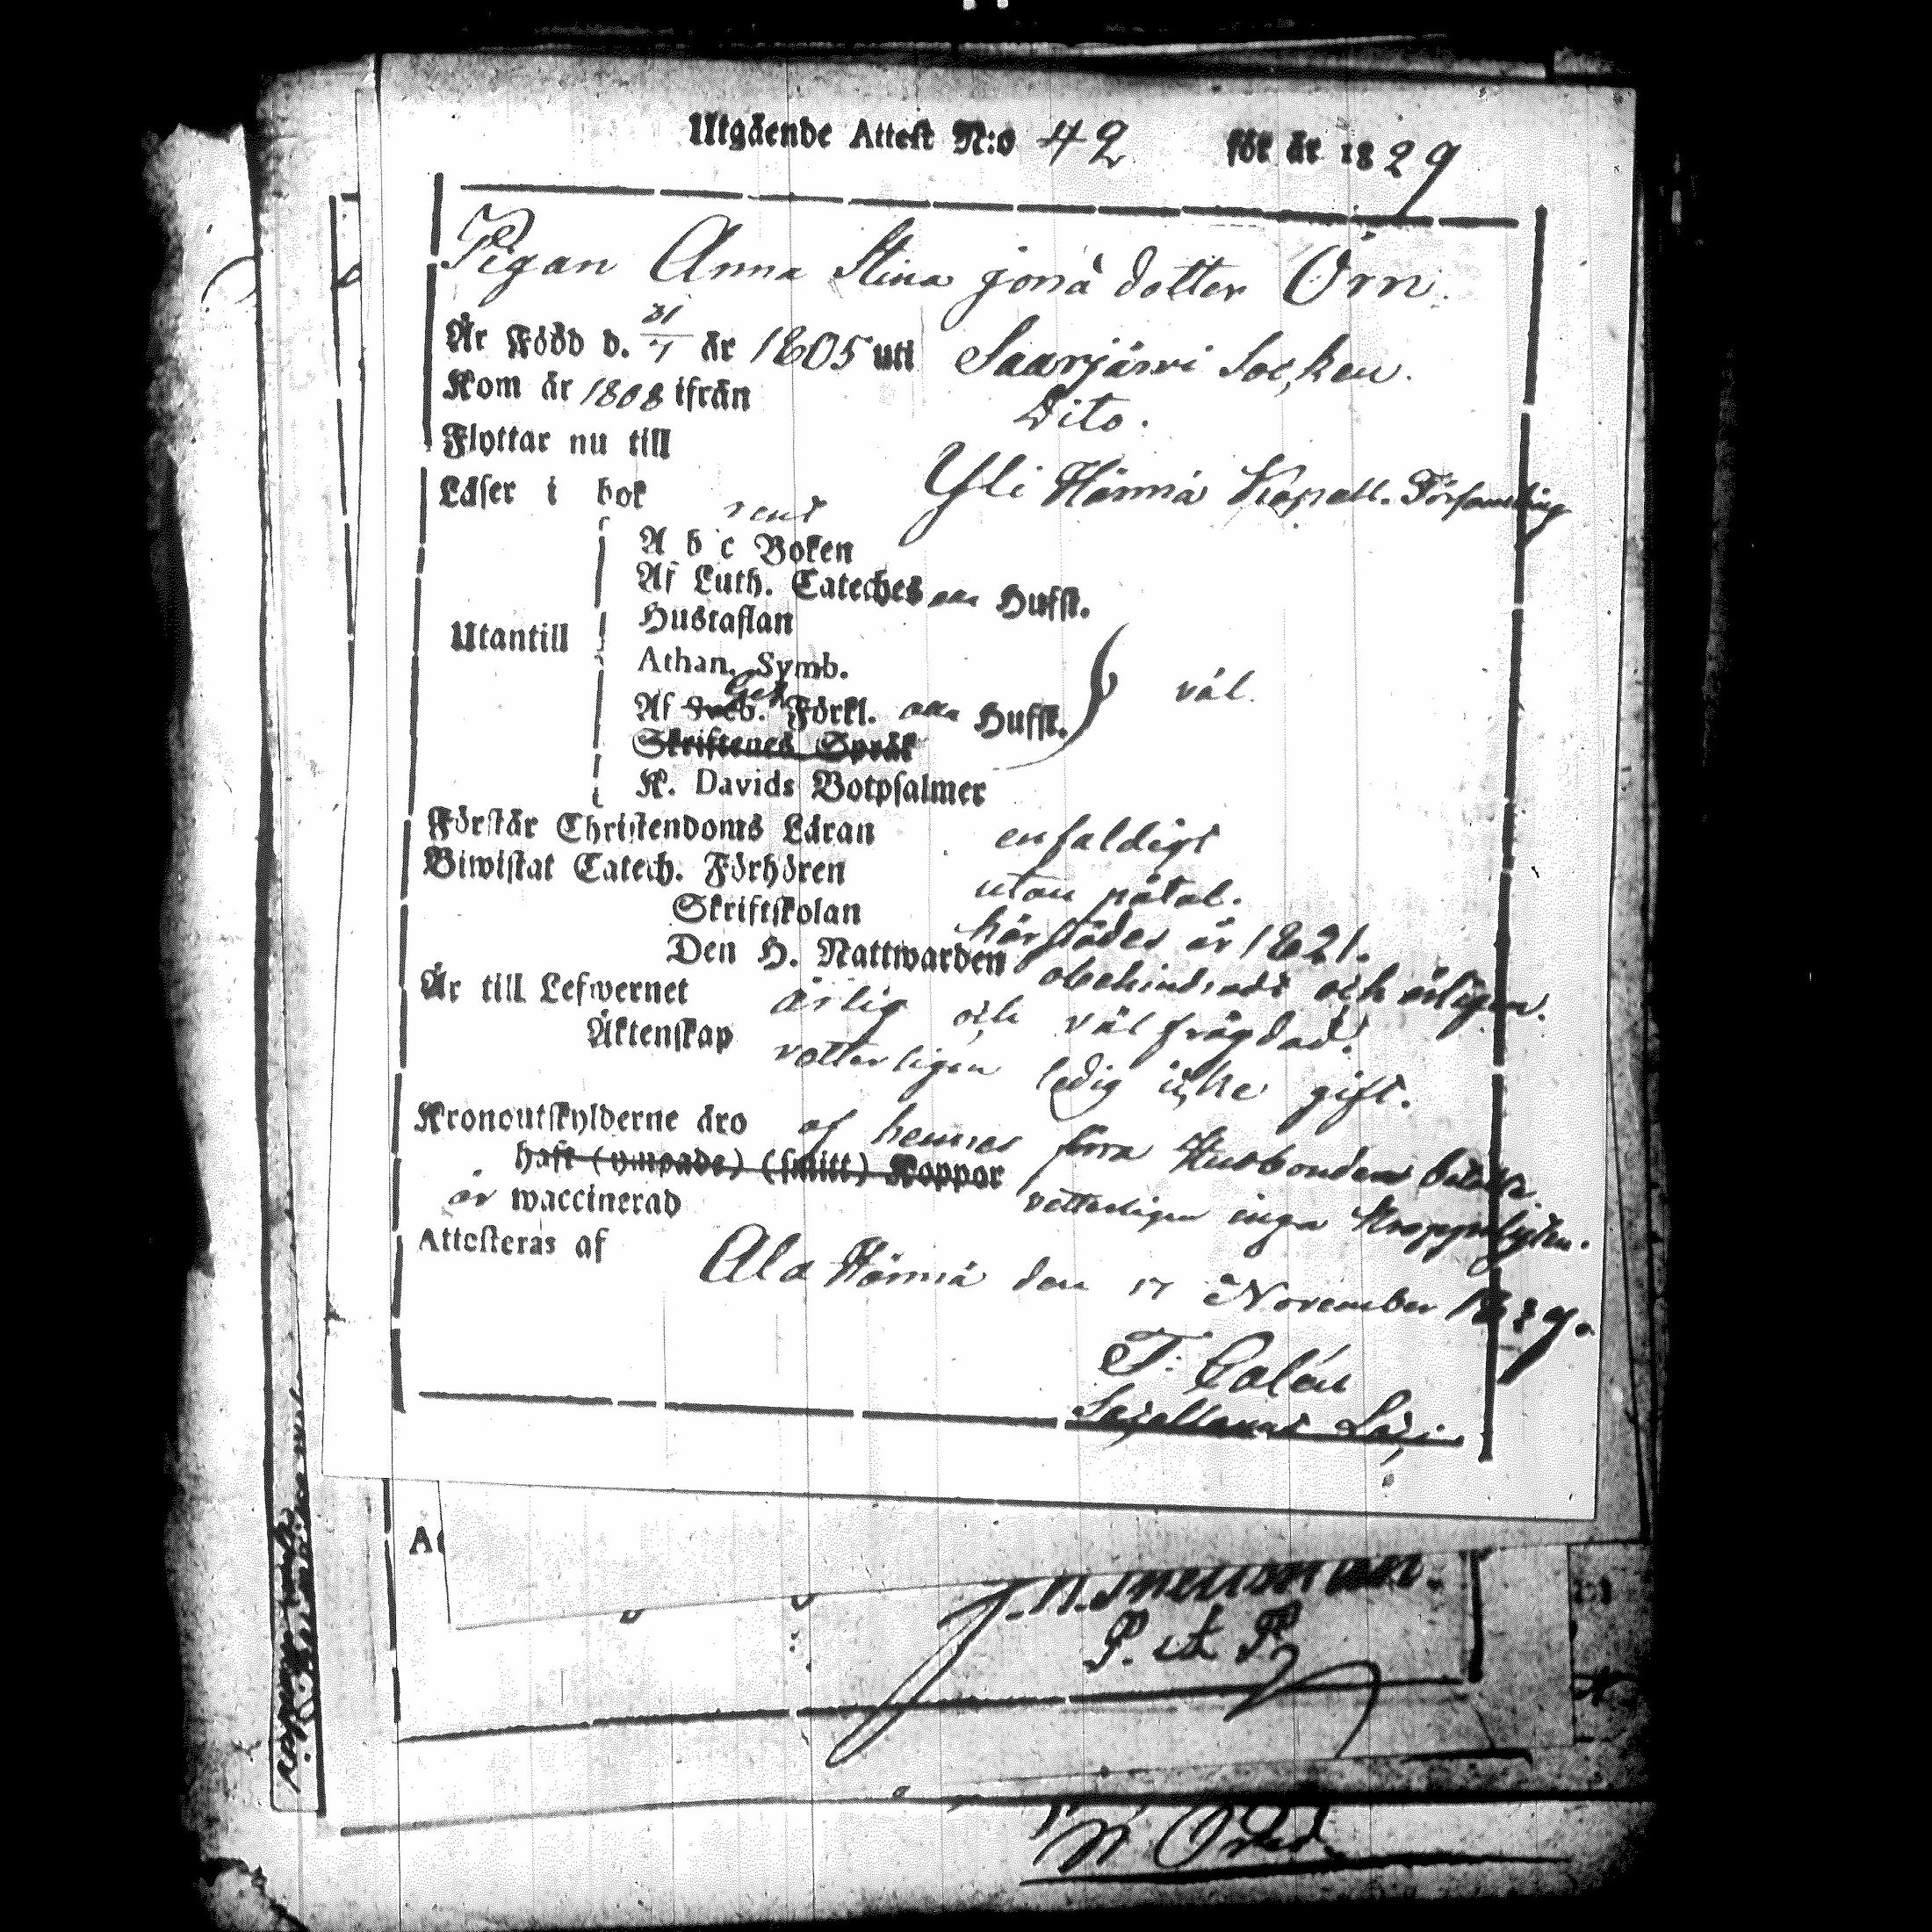 Utgående Attest N:o 42 för år 1829
Pigan Anna Stina Jonædotter Örn.
Är Född d. 31/7 år 1805 uti Saarjärvi Socken.
Kom år 1808 ifrån Dito.
Flyttar nu till Yli Härmä Kapell. Församling
Läser i bok rent
A b c Boken
Af Luth. Cateches alla Hufst.
Hustaflan
Utantill
Athan. Symb. väl.
Af Svеb. Förkl. alla Hufst.
Skriftenes Språk
K. Davids Botpsalmer
Förstår Christendoms Läran enfaldigt
Biwistat Catech. Förhören utan påtal.
Skriftskolan härstädes år 1821.
Den H. Nattwarden obehindradt och årligen.
Är till Lefwernet ärlig och välfrägdad.
Äktenskap vetterligen ledig icke gift.
Kronoutskylderne äro af hennes förra Husbonden betalte.
haft (ympade) (smitt) Koppor
är waccinerad vetterligen inga Kroppslyten.
Attesteras af
Ala Härmä den 17 November 1829.
At
P. et P.